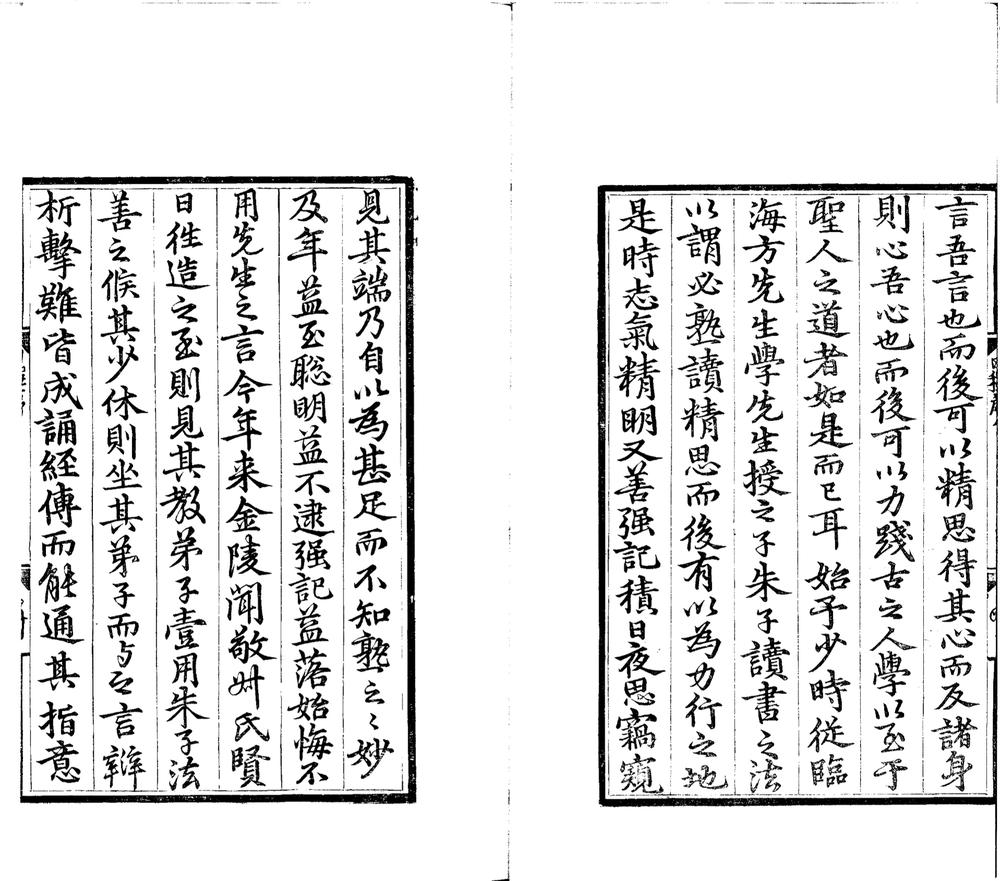 言吾言也而後可以精思得其心而反諸身
則心吾心也而後可以力踐古之人學以至于
聖人之道者如是而已耳始予少時從臨
海方先生學先生授之子朱子讀書之法
以謂必熟讀精思而後有以為力行之地
是時志氣精明又善强記積日夜思竊窺
見其端乃自以為甚足而不知熟之〻妙
及年益至聪明益不逮强記益落始悔不
用先生之言今年来金陵聞敬州氏賢
日徃造之至則見其教弟子壹用朱子法
善之俟其少休則坐其弟子而与之言辯
析擊難皆成誦經傳而能通其指意